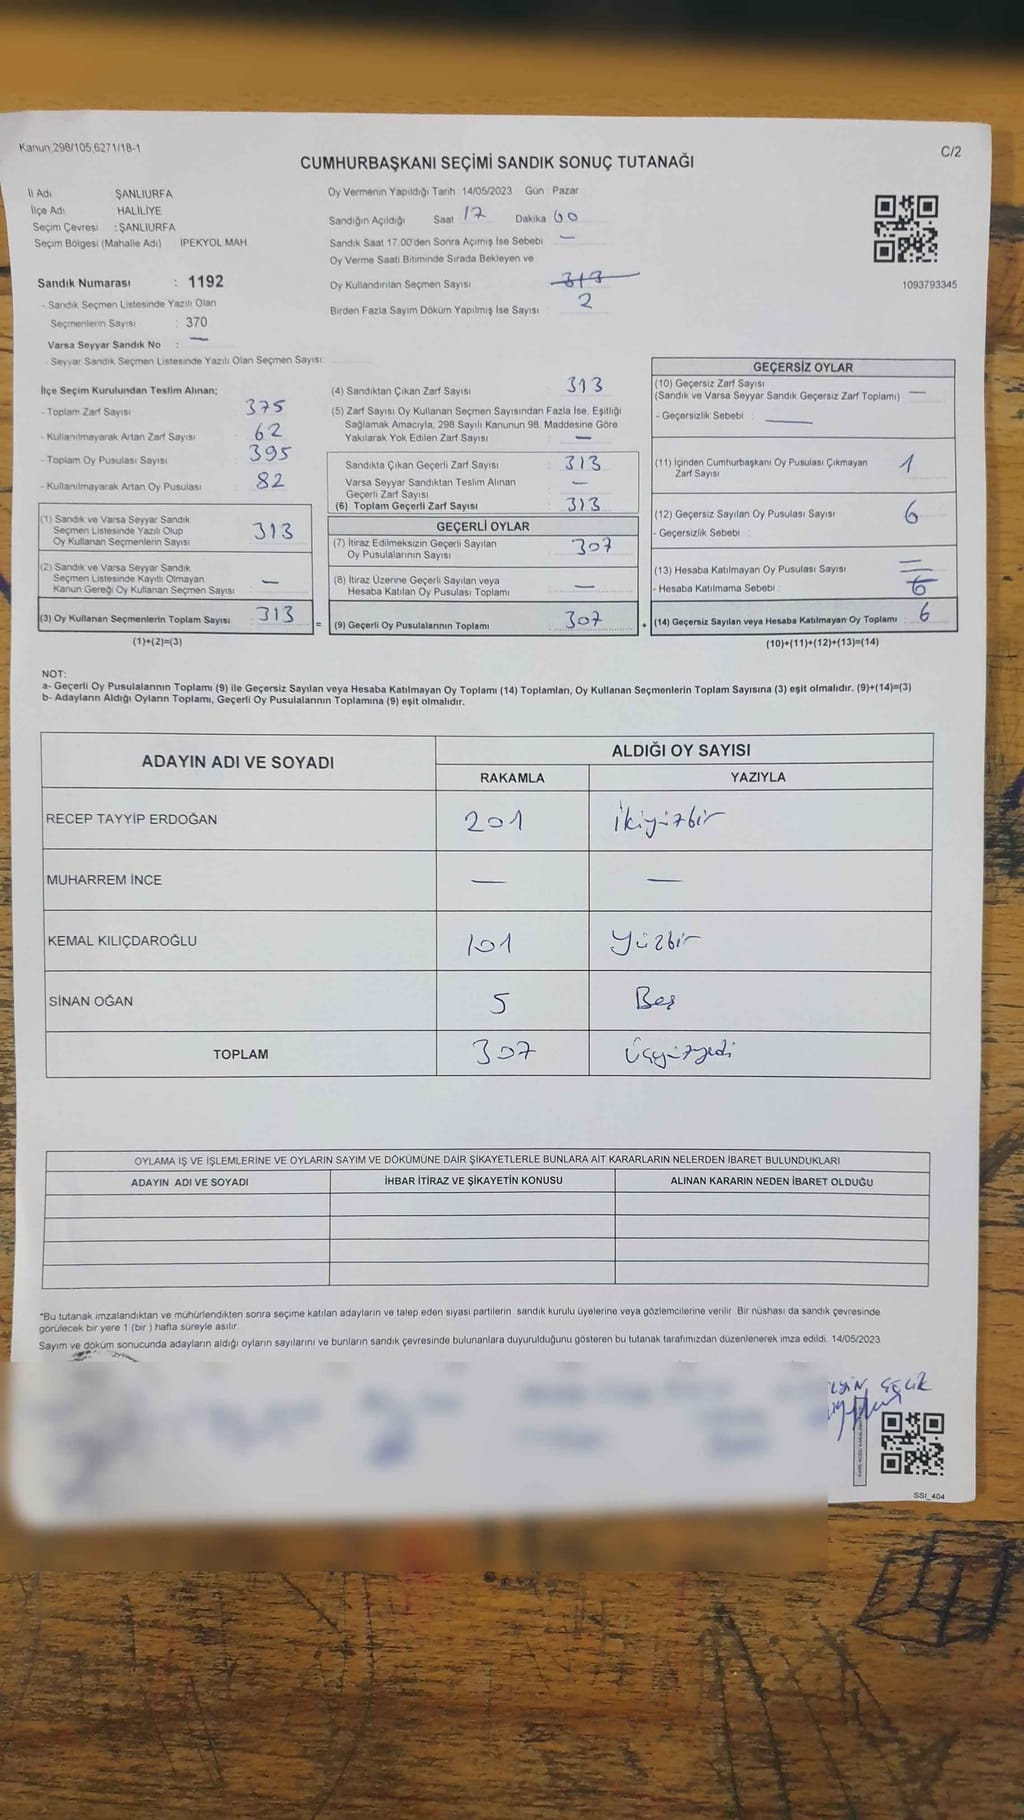 Kanun,298/105,6271/18-1
C/2
CUMHURBAŞKANI SEÇİMİ SANDIK SONUÇ TUTANAĞI
İl Adı ŞANLIURFA
İlçe Adı HALİLİYE
Seçim Çevresi :ŞANLIURFA
Seçim Bölgesi (Mahalle Adı) İPEKYOL MAH.
Sandık Numarası : 1192
- Sandık Seçmen Listesinde Yazılı Olan
Seçmenlerin Sayısı : 370
Varsa Seyyar Sandık No : —
- Seyyar Sandık Seçmen Listesinde Yazılı Olan Seçmen Sayısı:
Oy Vermenin Yapıldığı Tarih 14/05/2023 Gün Pazar
Sandığın Açıldığı Saat 17 Dakika 00
Sandık Saat 17.00'den Sonra Açımış İse Sebebi —
Oy Verme Saati Bitiminde Sırada Bekleyen ve
Oy Kullandırılan Seçmen Sayısı 313
Birden Fazla Sayım Döküm Yapılmış İse Sayısı: 2
1093793345
İlçe Seçim Kurulundan Teslim Alınan;
- Toplam Zarf Sayısı 375
- Kullanılmayarak Artan Zarf Sayısı 62
- Toplam Oy Pusulası Sayısı 395
- Kullanılmayarak Artan Oy Pusulası 82
(1) Sandık ve Varsa Seyyar Sandık
Seçmen Listesinde Yazılı Olup
Oy Kullanan Seçmenlerin Sayısı 313
(2) Sandık ve Varsa Seyyar Sandık
Seçmen Listesinde Kayıtlı Olmayan
Kanun Gereği Oy Kullanan Seçmen Sayısı —
(3) Oy Kullanan Seçmenlerin Toplam Sayısı 313
(1)+(2)=(3)
=
(4) Sandıktan Çıkan Zarf Sayısı 313
(5) Zarf Sayısı Oy Kullanan Seçmen Sayısından Fazla İse, Eşitliği
Sağlamak Amacıyla, 298 Sayılı Kanunun 98. Maddesine Göre
Yakılarak Yok Edilen Zarf Sayısı —
Sandıkta Çıkan Geçerli Zarf Sayısı 313
Varsa Seyyar Sandıktan Teslim Alınan
Geçerli Zarf Sayısı —
(6) Toplam Geçerli Zarf Sayısı 313
GEÇERLİ OYLAR
(7) İtiraz Edilmeksizin Geçerli Sayılan
Oy Pusulalarının Sayısı 307
(8) İtiraz Üzerine Geçerli Sayılan veya
Hesaba Katılan Oy Pusulası Toplamı —
(9) Geçerli Oy Pusulalarının Toplamı 307
+
GEÇERSİZ OYLAR
(10) Geçersiz Zarf Sayısı
(Sandık ve Varsa Seyyar Sandık Geçersiz Zarf Toplamı) —
- Geçersizlik Sebebi : —
(11) İçinden Cumhurbaşkanı Oy Pusulası Çıkmayan
Zarf Sayısı 1
(12) Geçersiz Sayılan Oy Pusulası Sayısı 6
- Geçersizlik Sebebi :
(13) Hesaba Katılmayan Oy Pusulası Sayısı =
- Hesaba Katılmama Sebebi : 6
(14) Geçersiz Sayılan veya Hesaba Katılmayan Oy Toplamı : 6
(10)+(11)+(12)+(13)=(14)
NOT:
a- Geçerli Oy Pusulalarının Toplamı (9) ile Geçersiz Sayılan veya Hesaba Katılmayan Oy Toplamı (14) Toplamları, Oy Kullanan Seçmenlerin Toplam Sayısına (3) eşit olmalıdır. (9)+(14)=(3)
b- Adayların Aldığı Oyların Toplamı, Geçerli Oy Pusulalarının Toplamına (9) eşit olmalıdır.
ADAYIN ADI VE SOYADI ALDIĞI OY SAYISI
RAKAMLA YAZIYLA
RECEP TAYYİP ERDOĞAN 201 İkiyüzbir
MUHARREM İNCE — —
KEMAL KILIÇDAROĞLU 101 Yüzbir
SİNAN OĞAN 5 Beş
TOPLAM 307 Üçyüzyedi
OYLAMA İŞ VE İŞLEMLERİNE VE OYLARIN SAYIM VE DÖKÜMÜNE DAİR ŞİKAYETLERLE BUNLARA AİT KARARLARIN NELERDEN İBARET BULUNDUKLARI
ADAYIN ADI VE SOYADI İHBAR İTİRAZ VE ŞİKAYETİN KONUSU ALINAN KARARIN NEDEN İBARET OLDUĞU
*Bu tutanak imzalandıktan ve mühürlendikten sonra seçime katılan adayların ve talep eden siyasi partilerin sandık kurulu üyelerine veya gözlemcilerine verilir. Bir nüshası da sandık çevresinde
görülecek bir yere 1 (bir ) hafta süreyle asılır.
Sayım ve döküm sonucunda adayların aldığı oyların sayılarını ve bunların sandık çevresinde bulunanlara duyurulduğunu gösteren bu tutanak tarafımızdan düzenlenerek imza edildi. 14/05/2023
ÇELİK
SSI_404